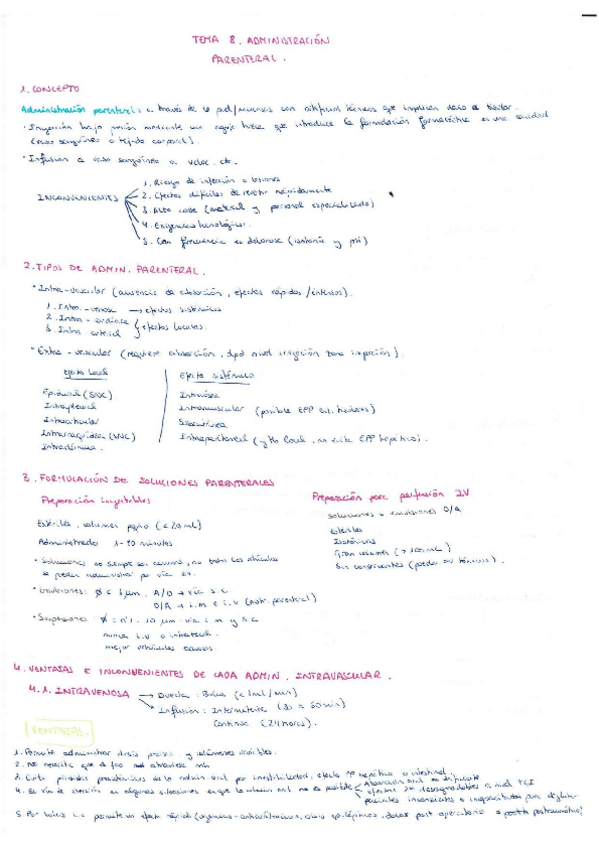 TEMA 8. ADMINISTRACIÓN
PARENTERAL.
1. CONCEPTO
Administración parenteral: a través de la piel/mucosas con artificios técnicos que implican daño al tisular.
· Inyección bajo presión mediante una aguja hueca que introduce la formulación farmacéutica en una cavidad
(vaso sanguíneo o tejido corporal).
· Infusión a vaso sanguíneo a veloc. cte.
INCONVENIENTES
1. Riesgo de infección o lesiones
2. Efectos difíciles de revertir rápidamente
3. Alto coste (material y personal especializado)
4. Exigencias tecnológicas.
5. Con frecuencia es dolorosa (isotonía y pH)
2. TIPOS DE ADMIN. PARENTERAL.
· Intra-vascular (ausencia de absorción, efectos rápidos/intensos).
1. Intra-venosa → efectos sistémicos
2. Intra-cardiaca
3. Intra arterial
efectos locales.
· Extra-vascular (requiere absorción, dpd nivel irrigación zona inyección).
Efecto local
Epidural (SNC)
Intrapleural
Intraarticular
Intraraquídea (SNC)
Intradérmica.
Efecto sistémico
Intraósea
Intramuscular (posible EPP)
Subcutánea
Intraperitoneal (y tto local, no evita EPP hepático).
3. FORMULACIÓN DE SOLUCIONES PARENTERALES
Preparación inyectables
Estériles, volumen pqño (<20 ml)
Administrados 1-10 minutos
· Soluciones no siempre son acuosas, no todos los vehículos
se pueden administrar por vía ev.
· Emulsiones: Ø < 1 μm. A/O → vía s.c
O/A → i.m e i.v (nutr. parenteral)
· Suspensiones: Ø = 0'1-10 μm vía i.m y s.c
nunca i.v o intratecal.
mejor vehículos acuosos.
Preparación para perfusión IV
Soluciones o emulsiones O/A
Estériles
Isotónicos
Gran volumen (>100 mL)
Sin conservantes (pueden ser tóxicos).
4. VENTAJAS E INCONVENIENTES DE CADA ADMIN. INTRAVASCULAR.
4.1. INTRAVENOSA
→ Directa: Bolus (<1ml/min)
→ Infusión: Intermitente (30 a 60 min)
Continua (24 horas).
VENTAJAS.
1. Permite administrar dosis precisa y volúmenes variables.
2. No necesita que el fco atraviese mb
3. Evita pérdidas presistémicas de la admin. oral por inestabilidad, efecto 1º hepático o intestinal.
4. Es vía de elección en algunas situaciones en que la admin oral no es posible
absorción oral es dificultosa
efectos 2os desagradables a nivel TGI
pacientes inconscientes o incapacitados para deglutir
5. Por bolus i.v permite un efecto rápido (urgencias-antiarrítmicos, crisis epilépticas, dolor post operatorio o postraumático)